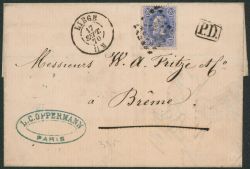 LIEGE
17
SEPT
8 M
P.D.
Messieurs W. A. Fritze & Co
à Brême
L.C. OPPERMANN
PARIS